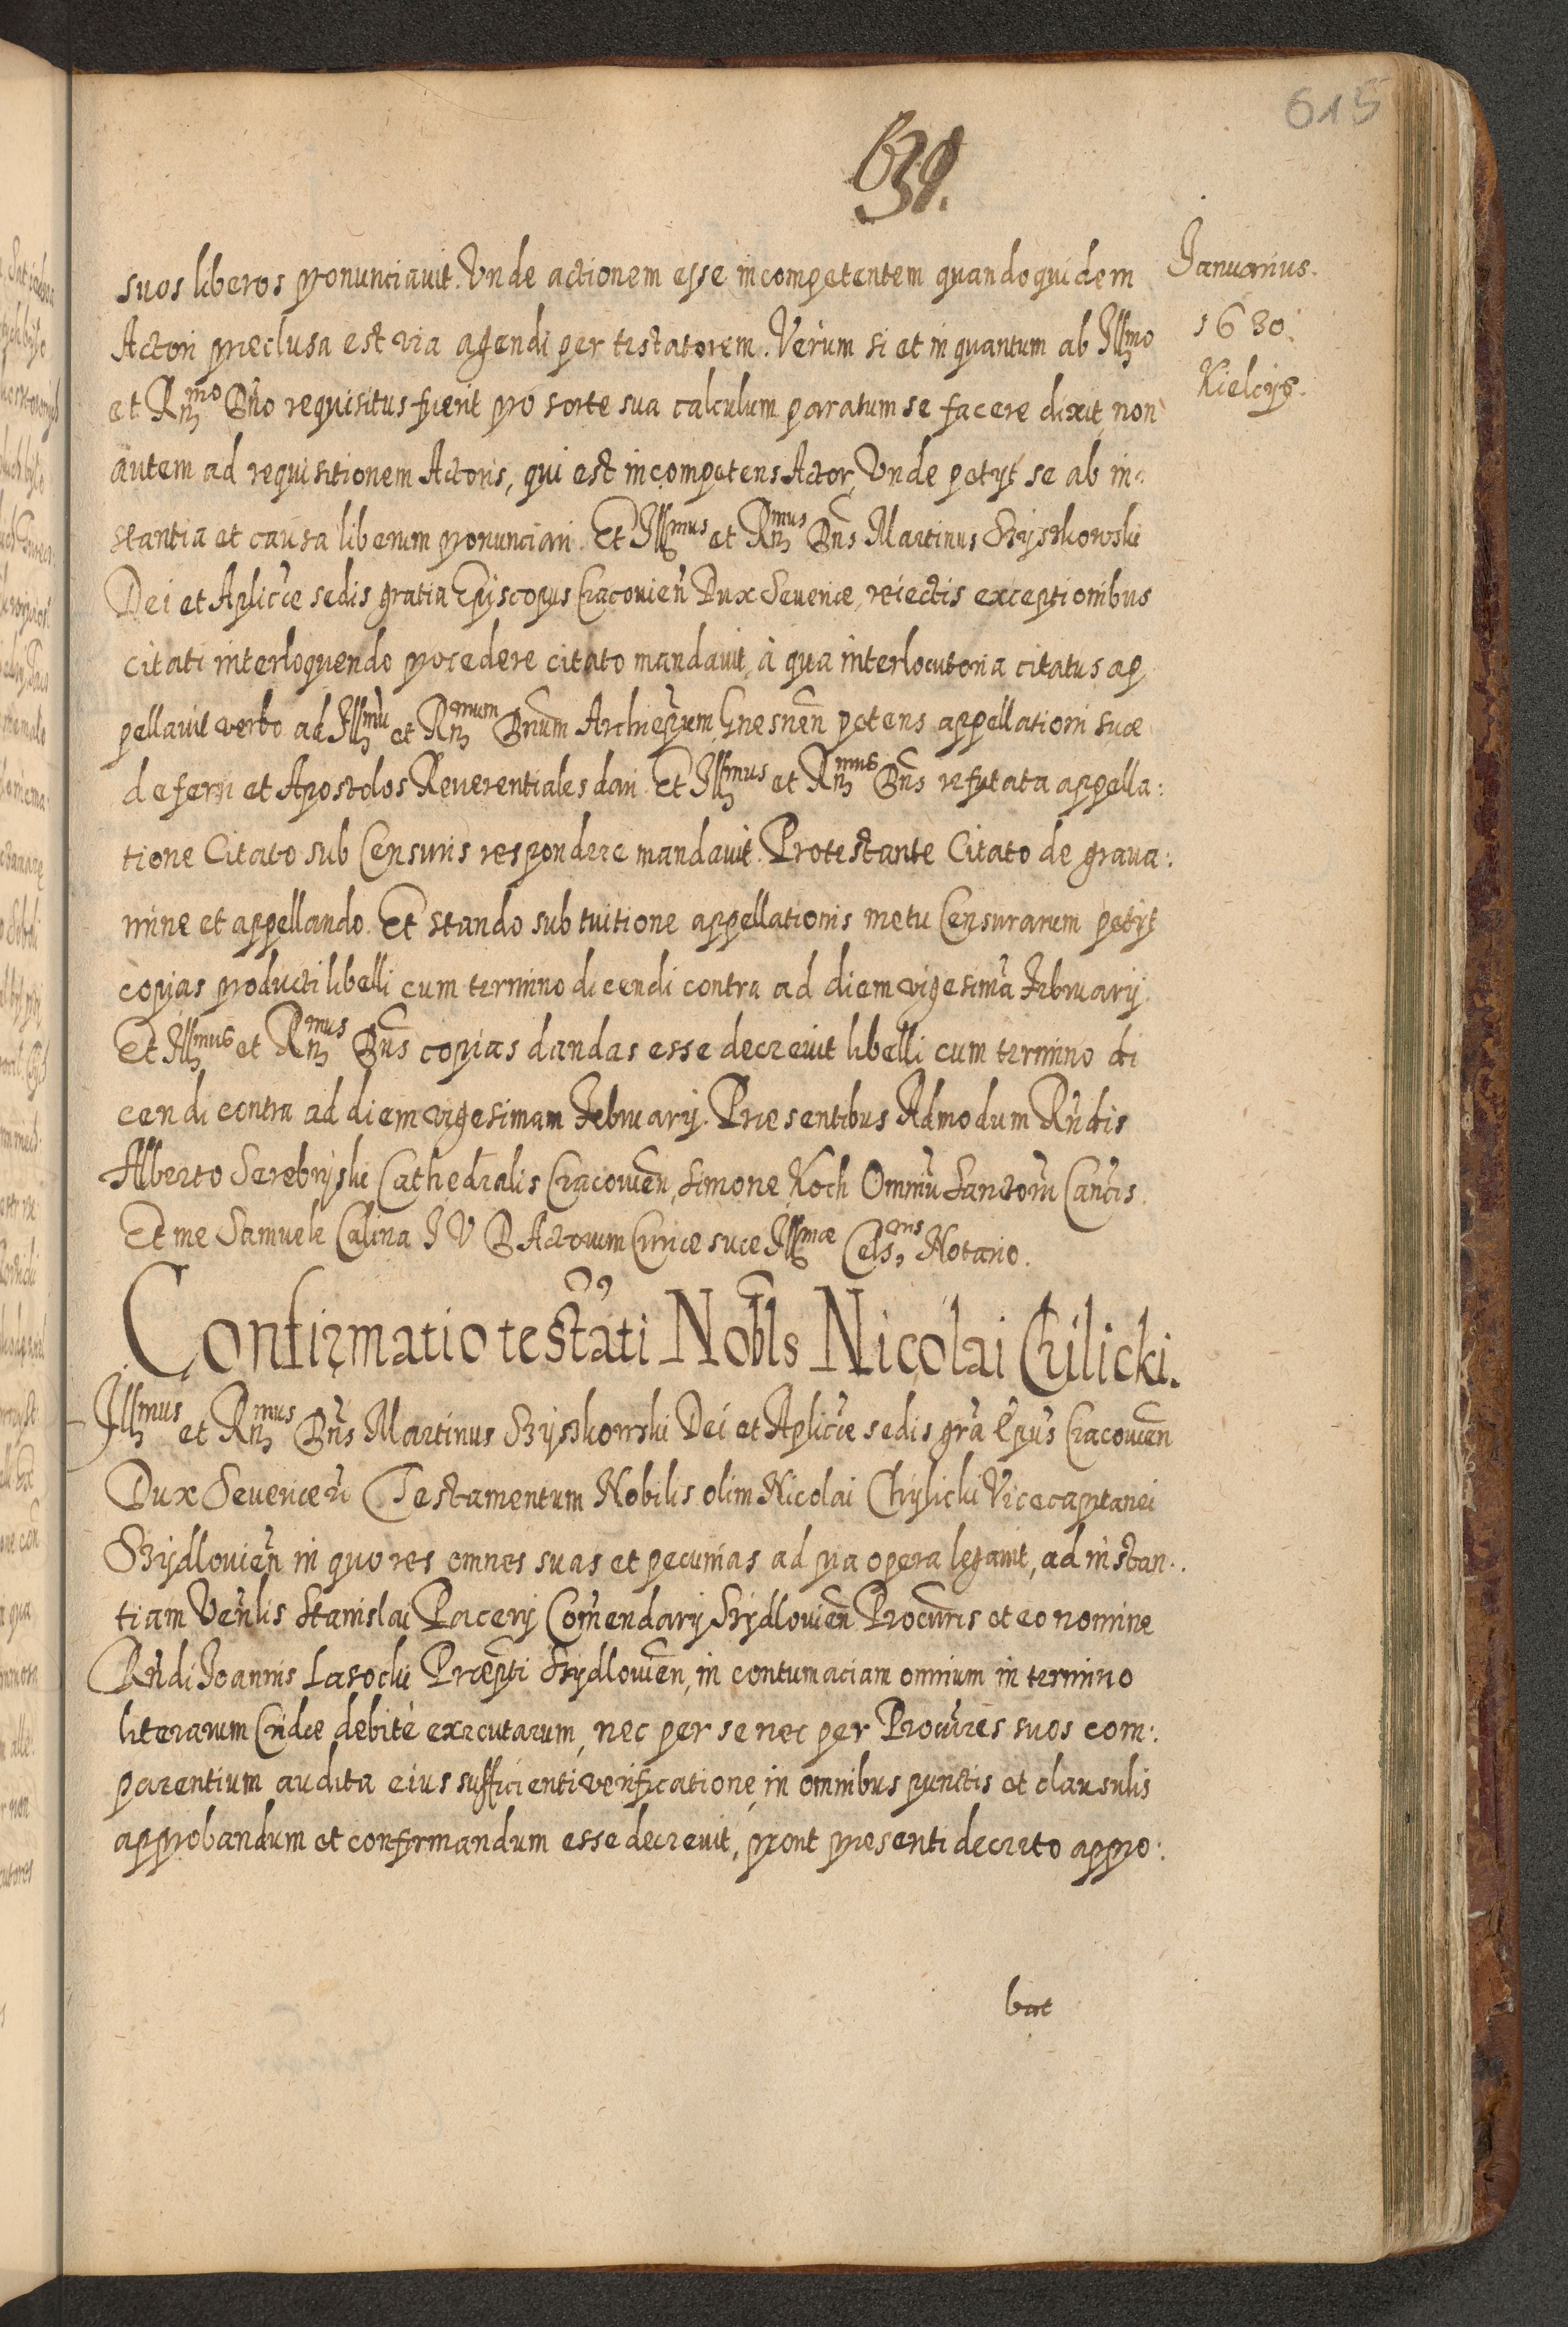 615
639.
Januarius.
1630.
Kielcijs.
suos liberos pronunciavit. Unde actionem esse incompetentem quandoquidem
Actori præclusa est via agendi per testatorem. Verum si et in quantum ab Illmo
et Rmo Dno requisitus fuerit pro sorte sua calculum paratum se facere dixit, non
autem ad requisitionem Actoris, qui est incompetens Actor, Unde petyt se ab in:
stantia et causa liberum pronunciari. Et Illmus et Rmus Dns Martinus Szyszkowski
Dei et Aplicæ sedis gratia Episcopus Cracovien Dux Severiæ, reiectis exceptionibus
citati interloquendo procedere citato mandavit, à qua interlocutoria citatus ap
pellavit verbo ad Illmu et Rmum Dnum Archiepum Gnesnen petens appellationi suæ
deferri et Apostolos Reverentiales dari. Et Illmus et Rmus Dns refutata appella:
tione Citato sub Censuris respondere mandavit. Protestante Citato de grava:
mine et appellando. Et stando sub tuitione appellationis metu Censurarum petyt
copias producti libelli cum termino dicendi contra ad diem vigesima February.
Et Illmus et Rmus Dns copias dandas esse decrevit libelli cum termino di
cendi contra ad diem vigesimam February. Præsentibus Admodum Rndis
Alberto Serebryski Cathedralis Cracovien, Simone Koch Omniu Sanctoru Cancis.
Et me Samuele Calina I V D Actorum Curiæ suæ Illmæ Cels: nis Notario.
Confirmatio testati Nobls Nicolai Chilicki.
Illmus et Rmus Dns Martinus Szyszkowski Dei et Aplicæ sedis gra Epus Cracovien
Dux Severiæn Testamentum Nobilis olim Nicolai Chylicki Vicecaptanei
Szydlovien in quo res omnes suas et pecunias ad pia opera legavit, ad instan.
tiam Venlis Stanislai Pacery Comendary Szydlovien Procuris et eo nomine
Rndi Ioannis Lasocki Præpti Szydlovien, in contumaciam omnium in termino
literarum Cridæ debitè executarum, nec per se nec per Procures suos com:
parentium audita eius sufficienti verificatione, in omnibus punctis et clausulis
approbandum et confirmandum esse decrevit, prout præsenti decreto appro:
bat